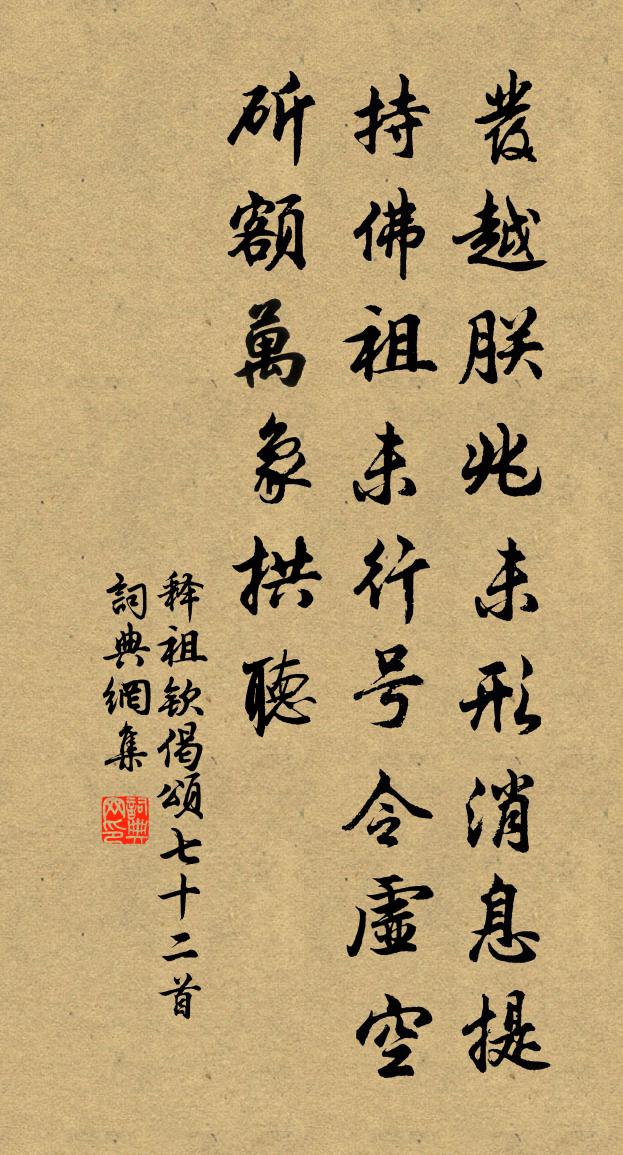 發越朕兆未形消息提
持佛祖未行号令虛空
斫額萬象拱聽
释祖钦偈頌七十二首
詞典網集
詞典网印